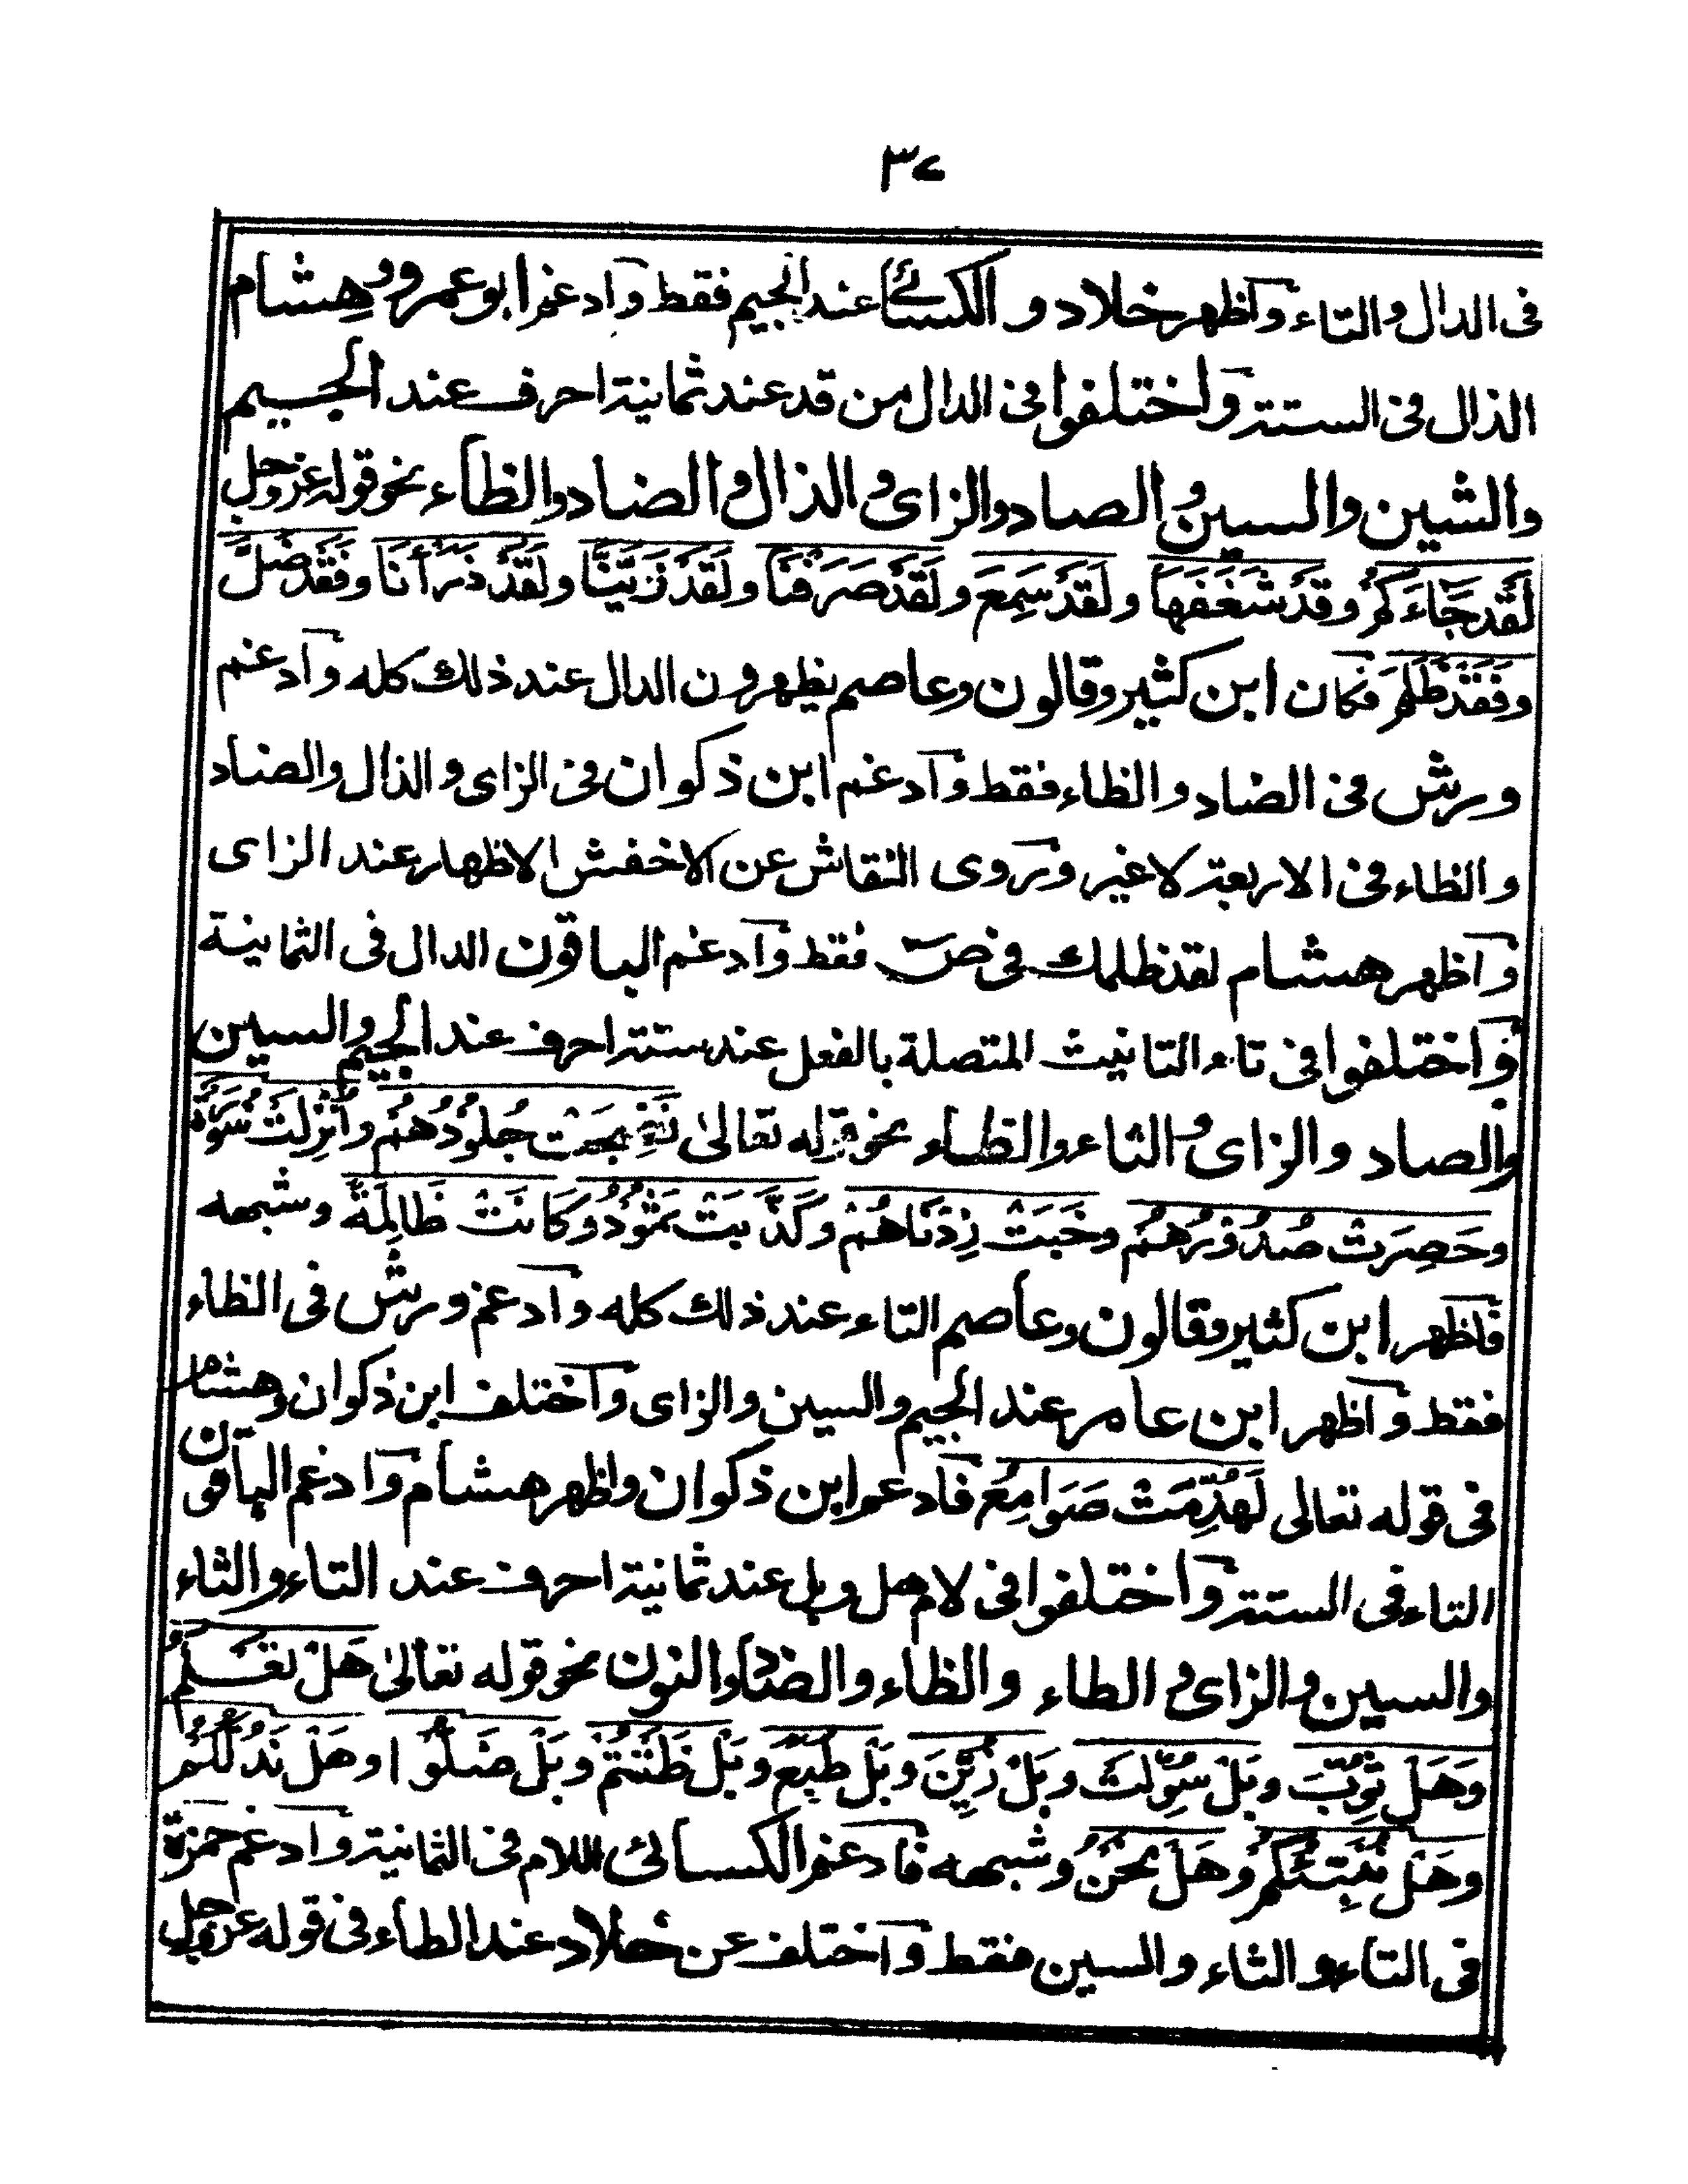 ٣٧
فى الدال والتاء وأظهر خلاد والكسائى عند الجيم فقط وادغم ابو عمرو وهشام
الذال فى الستة واختلفوا فى الدال من قد عند ثمانية احرف عند الجيم
والشين والسين والصاد والزاى والذال والضاد والظاء نحو قوله عز وجل
لَقَدْ جَاءَكُمْ وقَدْ شَغَفَهَا ولَقَدْ سَمِعَ ولَقَدْ صَرَفْنَا ولَقَدْ زَيَّنَّا ولَقَدْ ذَرَأْنَا وفَقَدْ ضَلَّ
وفَقَدْ ظَلَمَ فكان ابن كثير وقالون وعاصم يظهرون الدال عند ذلك كله وادغم
ورش فى الضاد والظاء فقط وادغم ابن ذكوان فى الزاى والذال والضاد
والظاء فى الاربعة لا غير وروى النقاش عن الاخفش الاظهار عند الزاى
واظهر هشام لقد ظلمك فى ص فقط وادغم الباقون الدال فى الثمانية
واختلفوا فى تاء التانيث المتصلة بالفعل عند ستة احرف عند الجيم والسين
والصاد والزاى والثاء والظاء نحو قوله تعالىٰ نَضِجَتْ جُلُودُهُمْ وأُنْزِلَتْ سُورَةٌ
وحَصِرَتْ صُدُوْرُهُمْ وخَبَتْ زِدْنَاهُمْ وكَذَّبَتْ ثَمُوْدُ وكَانَتْ ظَالِمَةً وشبهه
فاظهر ابن كثير وقالون وعاصم التاء عند ذلك كله وادغم ورش فى الظاء
فقط واظهر ابن عامر عند الجيم والسين والزاى واختلف ابن ذكوان وهشام
فى قوله تعالى لَهُدِّمَتْ صَوَامِعُ فادغم ابن ذكوان واظهر هشام وادغم الباقون
التاء فى الستة واختلفوا فى لام هل وبل عند ثمانية احرف عند التاء والثاء
والسين والزاى والطاء والظاء والضاد والنون نحو قوله تعالىٰ هَلْ تَعْلَمُ
وَهَلْ ثُوِّبَ وبَلْ سَوَّلَتْ وبَلْ زُيِّنَ وبَلْ طَبَعَ وبَلْ ظَنَنْتُمْ وبَلْ ضَلُّوا وهَلْ نَدُلُّكُمْ
وهَلْ نُنَبِّئُكُمْ وهَلْ نَحْنُ وشبهه فادغم الكسائى اللام فى الثمانية وادغم حمزة
فى التاء والثاء والسين فقط واختلف عن خلاد عند الطاء فى قوله عز وجل